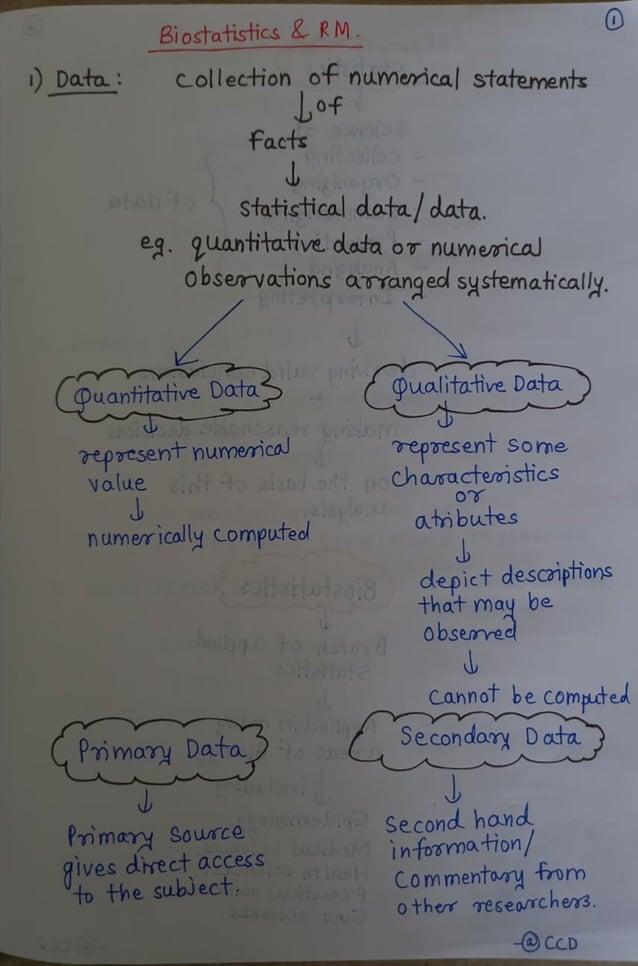 ①
Biostatistics & R M.
1) Data : collection of numerical statements
↓ of
Facts
↓
statistical data / data.
eg. quantitative data or numerical
observations arranged systematically.
Quantitative Data
↓
represent numerical
value
↓
numerically computed
Qualitative Data
↓
represent some
characteristics
or
atributes
↓
depict descriptions
that may be
observed
↓
cannot be computed
Primary Data
↓
Primary source
gives direct access
to the subject.
Secondary Data
↓
Second hand
information/
Commentary from
other researchers.
-@ CCD